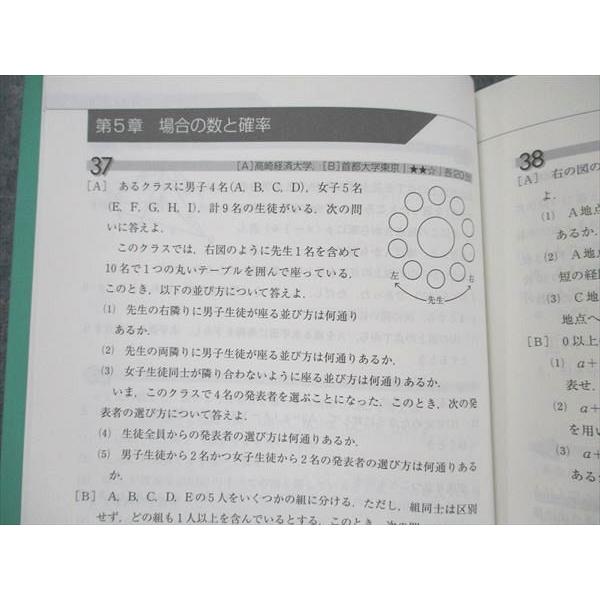 第5章 場合の数と確率
37
[A]高崎経済大学, [B]首都大学東京 | ★★☆ | 各20分
[A] あるクラスに男子4名(A, B, C, D), 女子5名
(E, F, G, H, I), 計9名の生徒がいる. 次の問
いに答えよ.
このクラスでは, 右図のように先生1名を含めて
10名で1つの丸いテーブルを囲んで座っている.
このとき, 以下の並び方について答えよ.
(1) 先生の右隣りに男子生徒が座る並び方は何通り
あるか.
(2) 先生の両隣りに男子生徒が座る並び方は何通りあるか.
(3) 女子生徒同士が隣り合わないように座る並び方は何通りあるか.
いま, このクラスで4名の発表者を選ぶことになった. このとき, 次の発
表者の選び方について答えよ.
(4) 生徒全員からの発表者の選び方は何通りあるか.
(5) 男子生徒から2名かつ女子生徒から2名の発表者の選び方は何通りある
か.
[B] A, B, C, D, Eの5人をいくつかの組に分ける. ただし, 組同士は区別
せず, どの組も1人以上を含んでいるとする. このとき, 次の問
左
先生
右
38
[A] 右の図の
よ.
(1) A地点
あるか.
(2) A地
短の経
(3) C地
地点へ
[B] 0以上
(1) a+
表せ.
(2) a+
を用い
(3) a+
ある